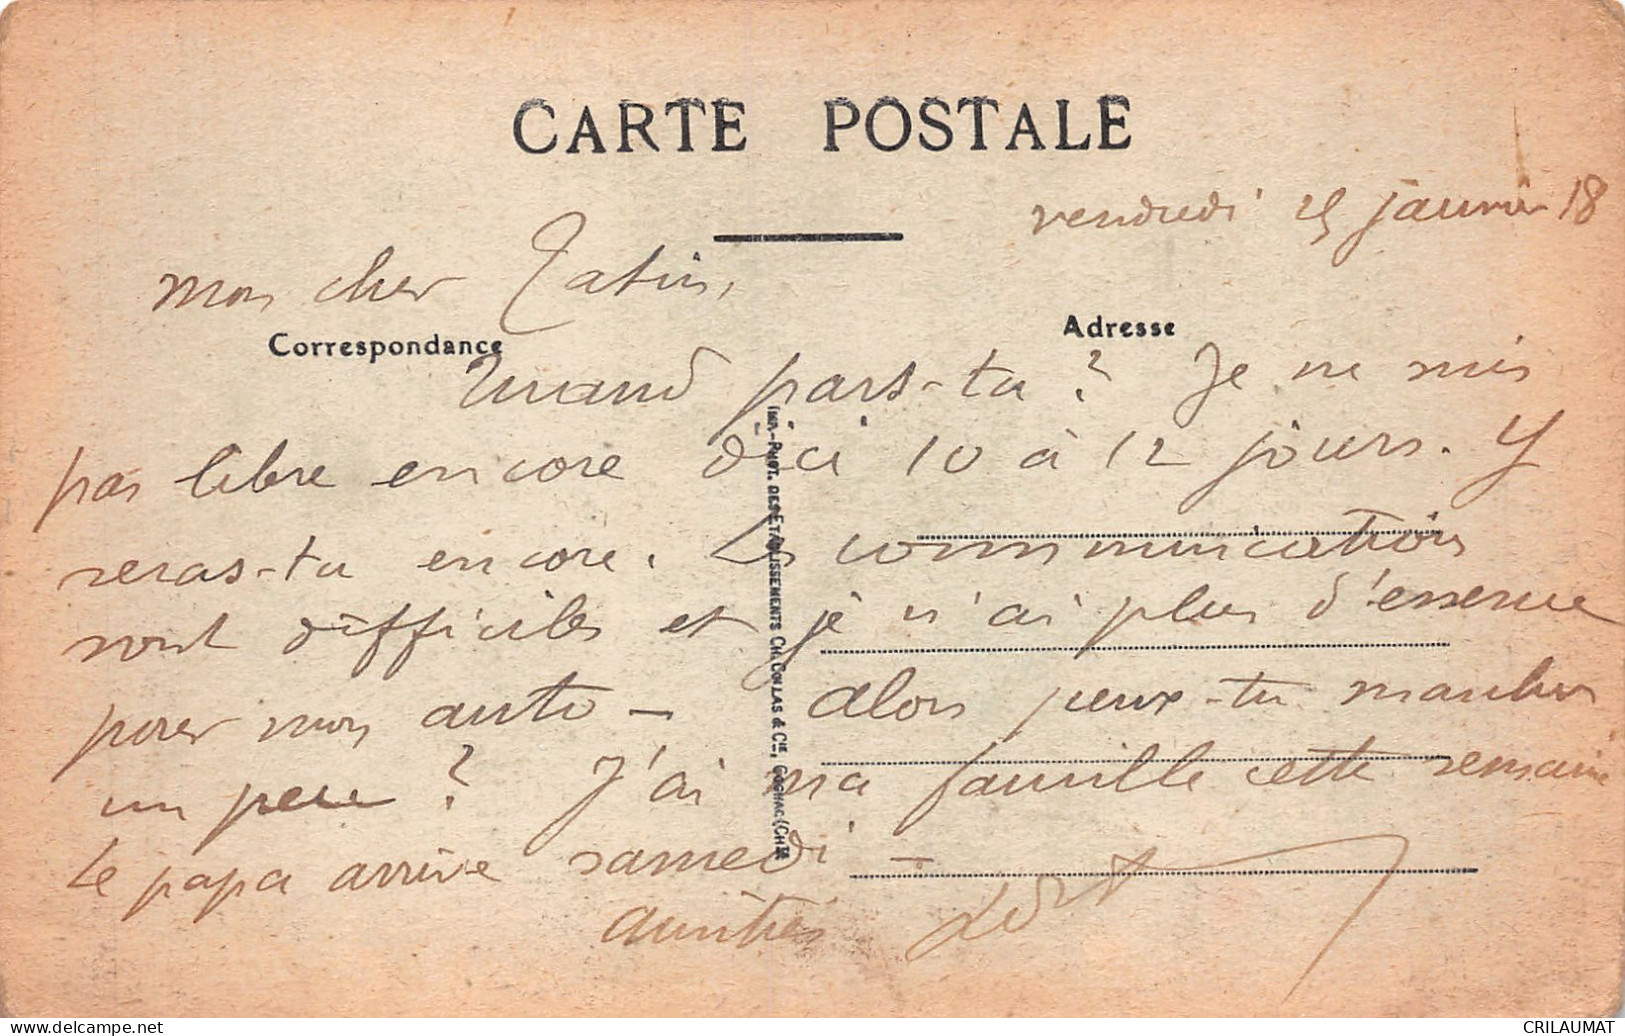 CARTE POSTALE
vendredi 25 janvier 18
mon cher
Correspondance
Adresse
Quand pars-tu ? Je ne suis
pas libre encore d'ici 10 à 12 jours. Y
seras-tu encore. Les communications
sont difficiles et je n'ai plus d'essence
pour mon auto - Alors peux-tu
un peu ? J'ai ma famille cette semaine
Le papa arrive samedi -
amitiés
IMP.-PHOT. DES ETABLISSEMENTS CH. COLLAS & CIE, COGNAC (CHTE
www.delcampe.net
CRILAUMAT